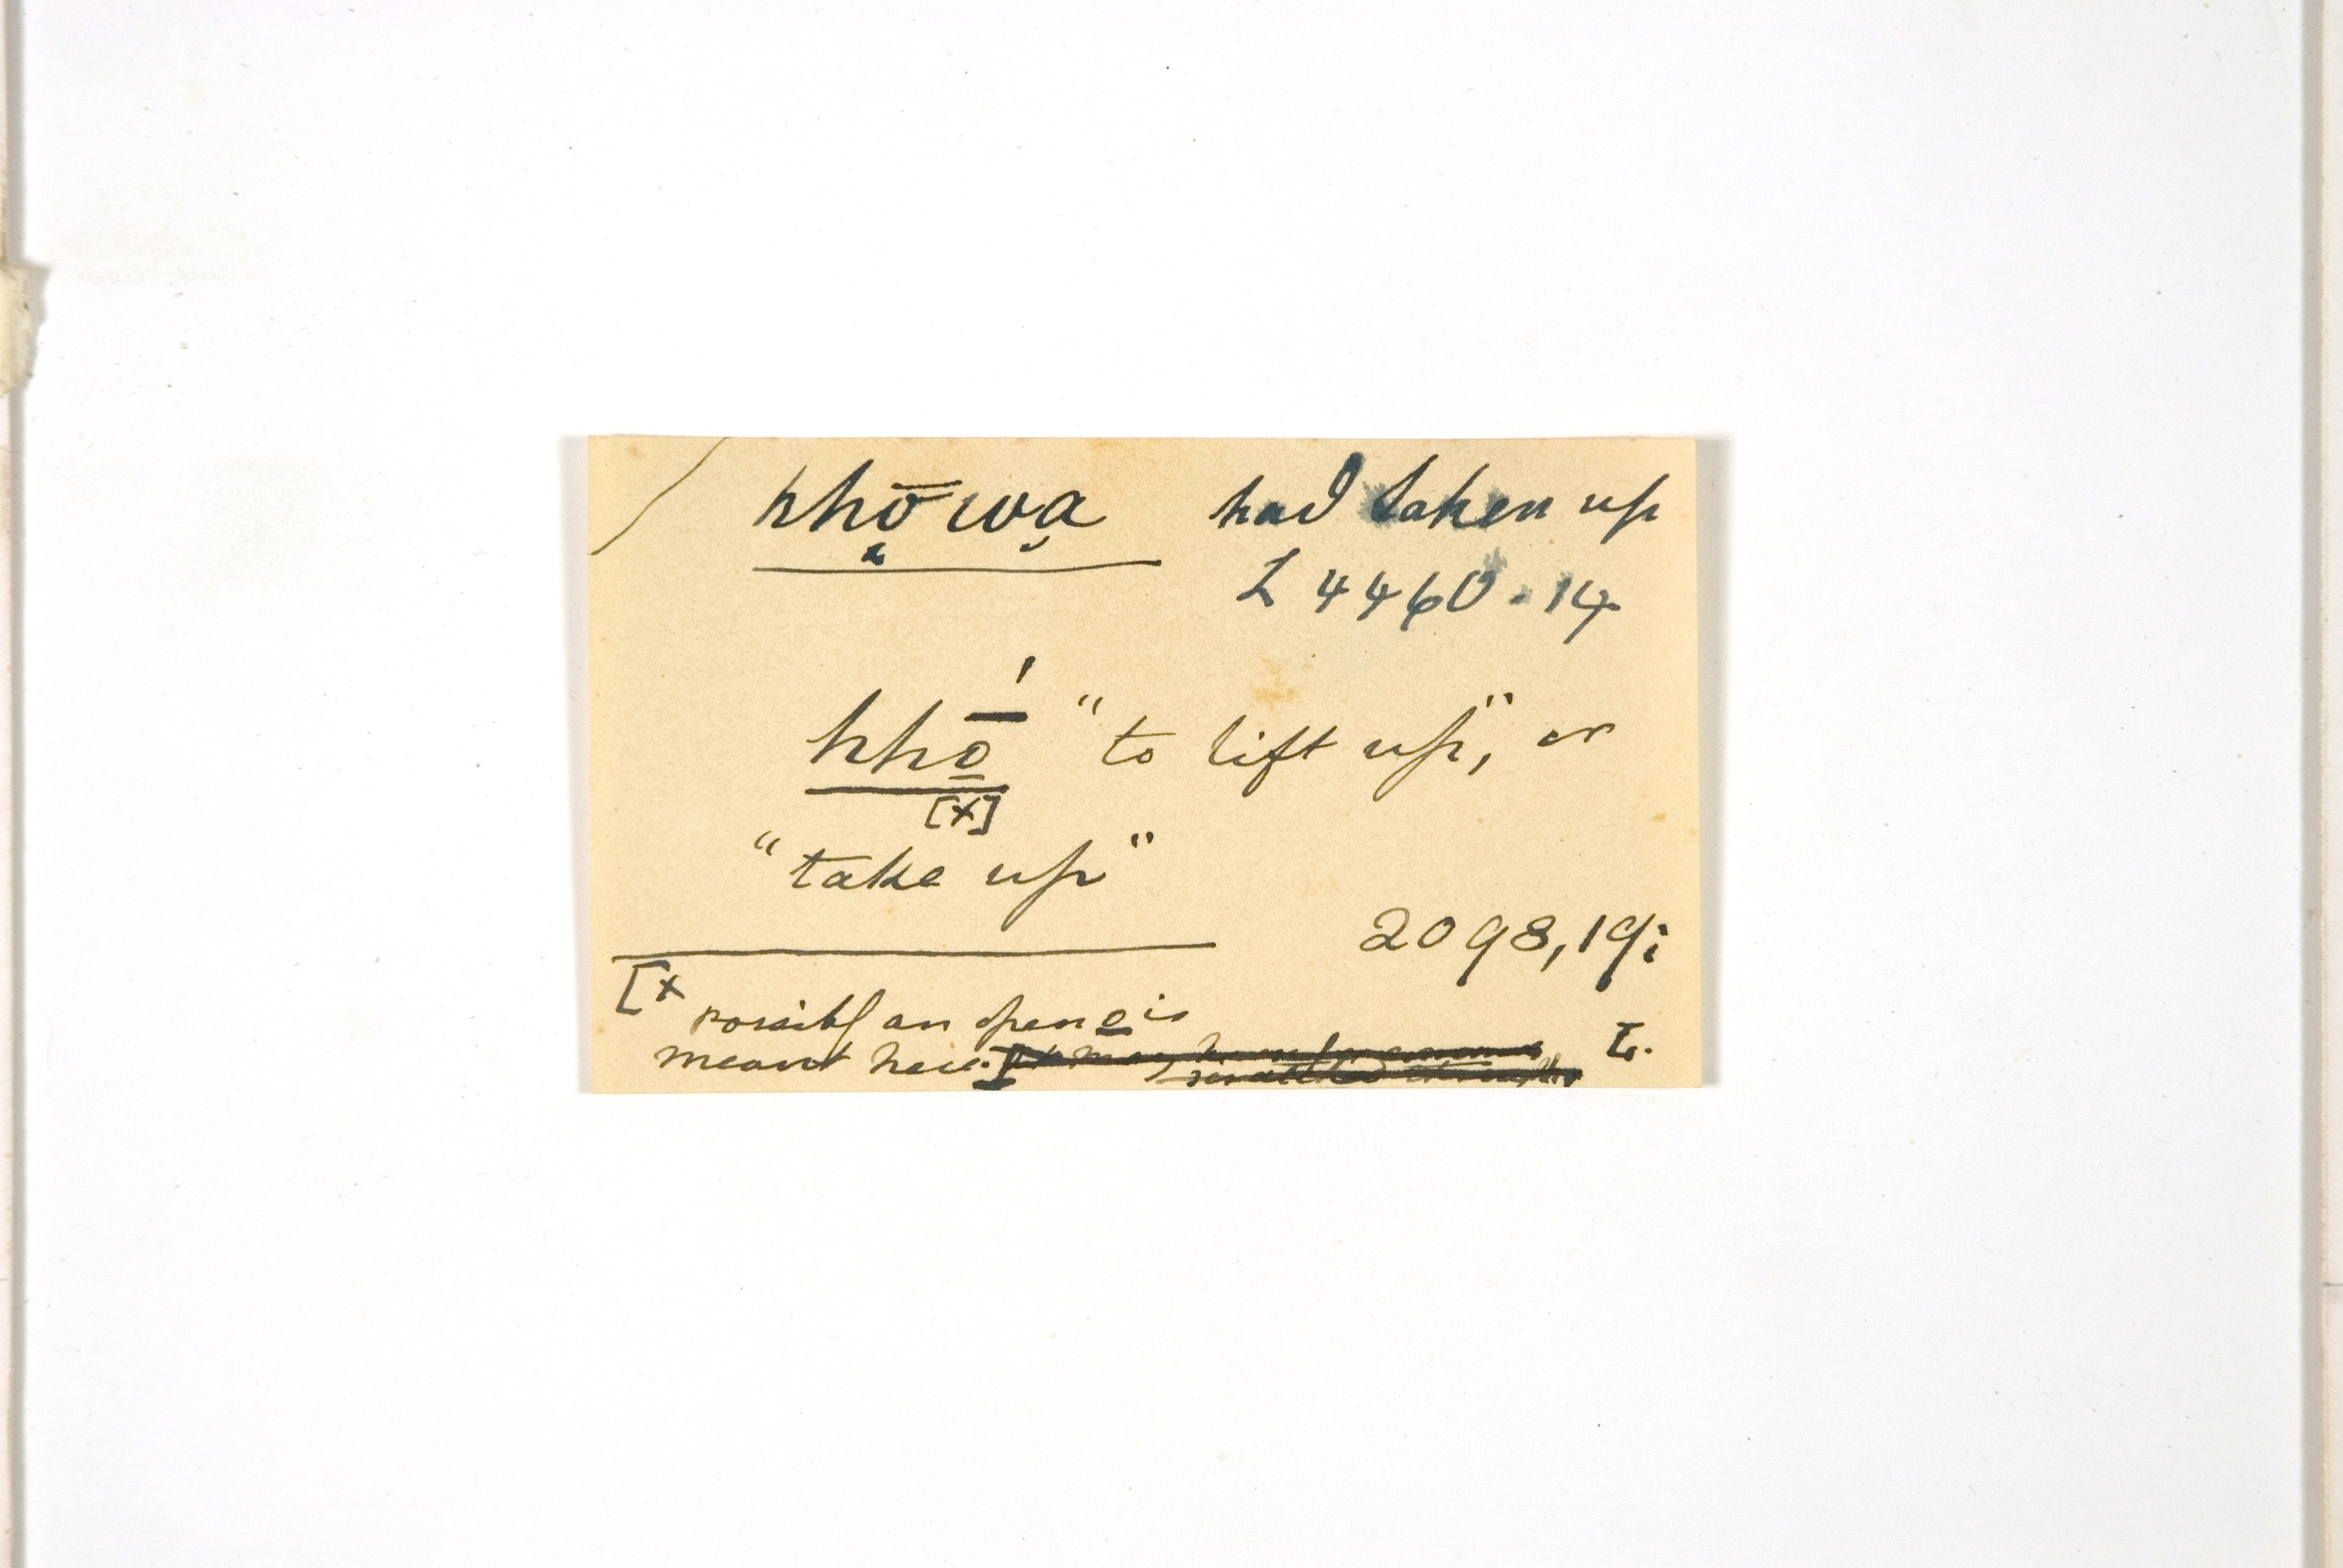 khō̱wa̮ had taken up
L 4460.14
khṓ̱ "to lift up", or
[x]
"take up"
2098,19;
[x possibly an open o is
meant here. L.